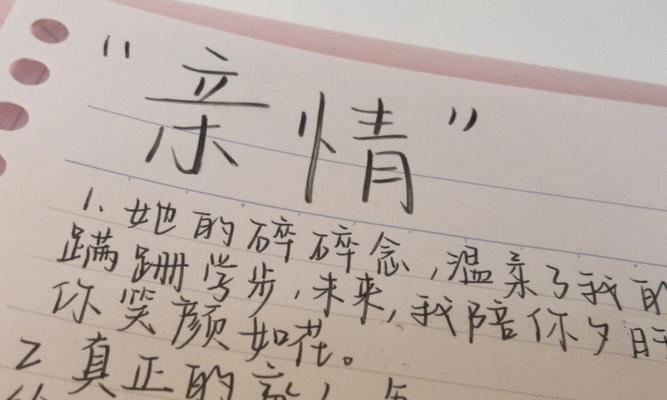 "亲情"
1. 她的碎碎念,温柔了我的
蹒跚学步,未来,我陪你夕阳
你笑颜如花。
2 真正的